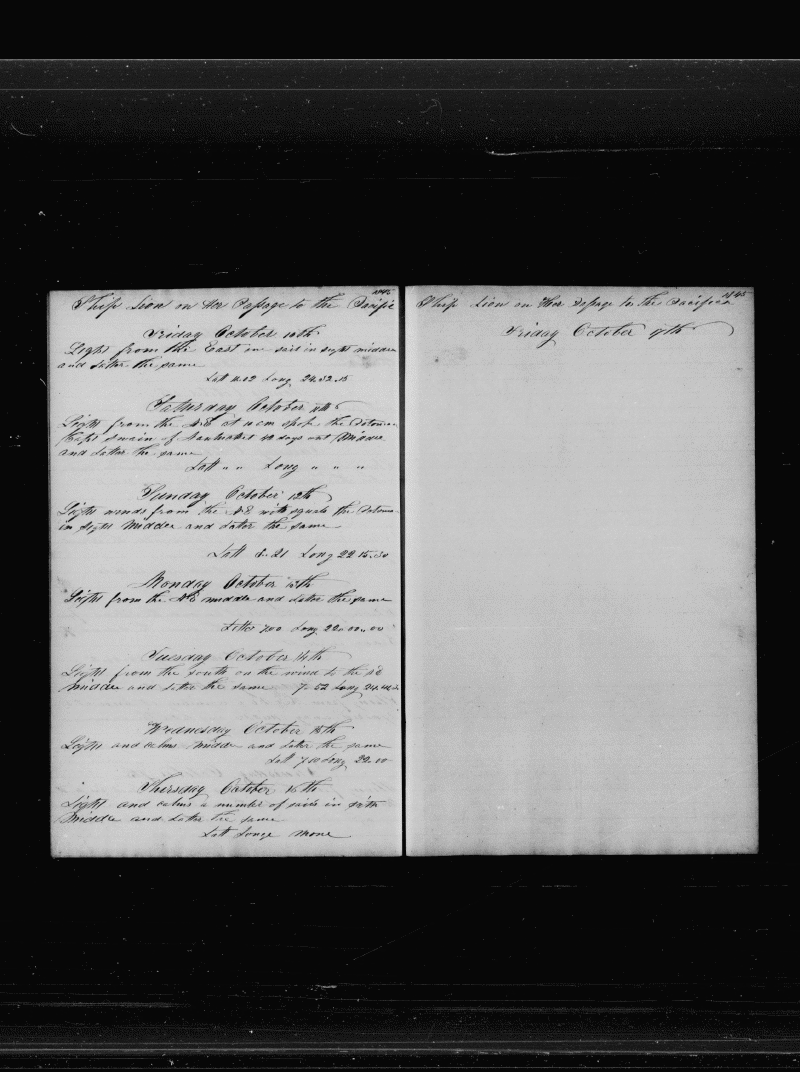 1845
Ship Lion on Her Passage to the Pacific
Friday October 10th
Light from the East one sail in sight middle
and Latter the same
Latt 11.02 Long 24.32.15
Saturday October 11th
Lights from the NE at 11 am spoke the
Ship swain of Nantucket days out Middle
and Latter the same
Latt " " Long " " "
Sunday October 12th
Lights winds from the NE with squals the
in sight Middle and Later the same
Latt 8.21 Long 22.15.30
Monday October 13th
Lights from the NE middle and Latter the same
Latter 7.00 Long 22.00.00
Tuesday October 14th
Light from the south on the wind to the
Middle and Latter the same 7.52 Long
Wednesday October 15th
Lights and calms Middle and Latter the same
Latt Long 22.00
Thursday October 16th
Light and calms a number of sails in sith
Middle and Latter the same
Latt Longe None
1845
Ship Lion on Her Passage to the Pacific
Friday October 17th